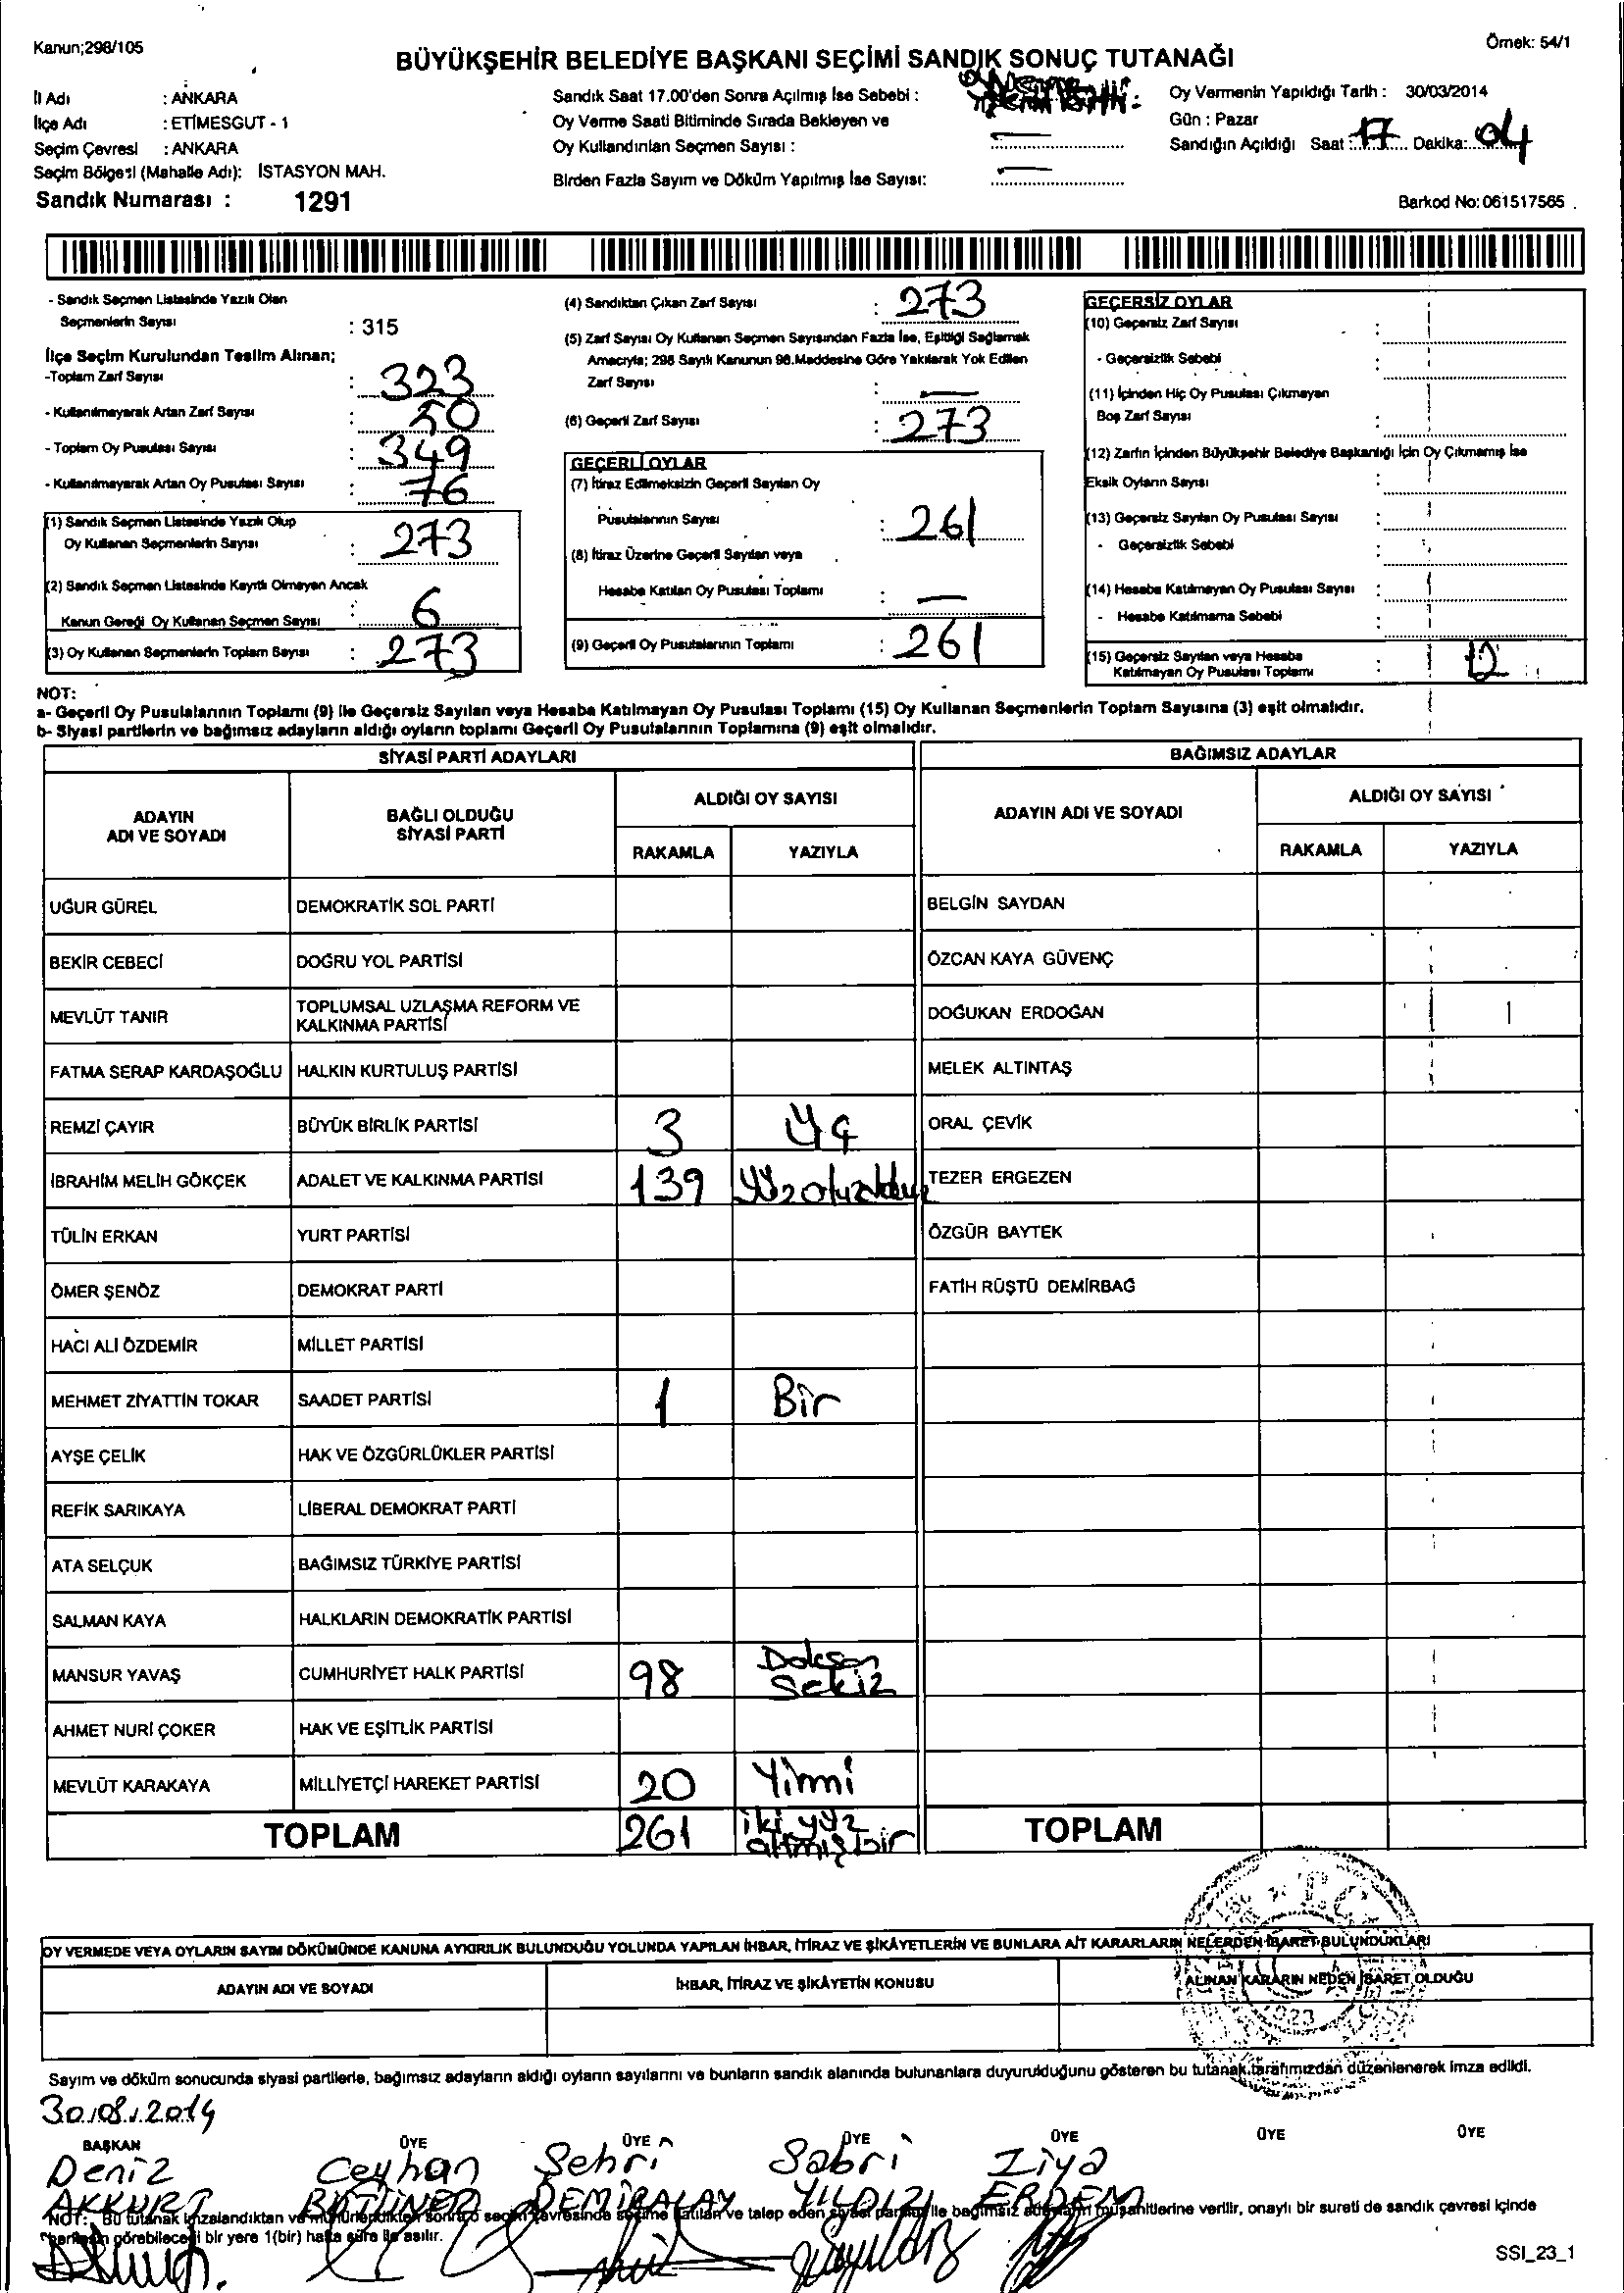 Kanun;298/105
Örnek: 54/1
BÜYÜKŞEHİR BELEDİYE BAŞKANI SEÇİMİ SANDIK SONUÇ TUTANAĞI
İl Adı : ANKARA
İlçe Adı : ETİMESGUT - 1
Seçim Çevresi : ANKARA
Seçim Bölgesi (Mahalle Adı): İSTASYON MAH.
Sandık Numarası : 1291
Sandık Saat 17.00'den Sonra Açılmış İse Sebebi :
Oy Verme Saati Bitiminde Sırada Bekleyen ve
Oy Kullandırılan Seçmen Sayısı : —
Birden Fazla Sayım ve Döküm Yapılmış İse Sayısı: —
Oy Vermenin Yapıldığı Tarih : 30/03/2014
Gün : Pazar
Sandığın Açıldığı Saat : 17 Dakika: 04
Barkod No: 061517565
- Sandık Seçmen Listesinde Yazılı Olan
Seçmenlerin Sayısı : 315
İlçe Seçim Kurulundan Teslim Alınan;
-Toplam Zarf Sayısı : 323
- Kullanılmayarak Artan Zarf Sayısı : 50
- Toplam Oy Pusulası Sayısı : 349
- Kullanılmayarak Artan Oy Pusulası Sayısı : 76
(1) Sandık Seçmen Listesinde Yazılı Olup
Oy Kullanan Seçmenlerin Sayısı : 273
(2) Sandık Seçmen Listesinde Kayıtlı Olmayan Ancak
Kanun Gereği Oy Kullanan Seçmen Sayısı : 6
(3) Oy Kullanan Seçmenlerin Toplam Sayısı : 273
(4) Sandıktan Çıkan Zarf Sayısı : 273
(5) Zarf Sayısı Oy Kullanan Seçmen Sayısından Fazla İse, Eşitliği Sağlamak
Amacıyla; 298 Sayılı Kanunun 98.Maddesine Göre Yakılarak Yok Edilen
Zarf Sayısı : —
(6) Geçerli Zarf Sayısı : 273
GEÇERLİ OYLAR
(7) İtiraz Edilmeksizin Geçerli Sayılan Oy
Pusulalarının Sayısı : 261
(8) İtiraz Üzerine Geçerli Sayılan veya
Hesaba Katılan Oy Pusulası Toplamı : —
(9) Geçerli Oy Pusulalarının Toplamı : 261
GEÇERSİZ OYLAR
(10) Geçersiz Zarf Sayısı :
- Geçersizlik Sebebi :
(11) İçinden Hiç Oy Pusulası Çıkmayan
Boş Zarf Sayısı :
(12) Zarfın İçinden Büyükşehir Belediye Başkanlığı İçin Oy Çıkmamış İse
Eksik Oyların Sayısı :
(13) Geçersiz Sayılan Oy Pusulası Sayısı :
- Geçersizlik Sebebi :
(14) Hesaba Katılmayan Oy Pusulası Sayısı :
- Hesaba Katılmama Sebebi :
(15) Geçersiz Sayılan veya Hesaba
Katılmayan Oy Pusulası Toplamı : 12
NOT:
a- Geçerli Oy Pusulalarının Toplamı (9) ile Geçersiz Sayılan veya Hesaba Katılmayan Oy Pusulası Toplamı (15) Oy Kullanan Seçmenlerin Toplam Sayısına (3) eşit olmalıdır.
b- Siyasi partilerin ve bağımsız adayların aldığı oyların toplamı Geçerli Oy Pusulalarının Toplamına (9) eşit olmalıdır.
SİYASİ PARTİ ADAYLARI
BAĞIMSIZ ADAYLAR
ADAYIN
ADI VE SOYADI
BAĞLI OLDUĞU
SİYASİ PARTİ
ALDIĞI OY SAYISI
RAKAMLA YAZIYLA
ADAYIN ADI VE SOYADI
ALDIĞI OY SAYISI
RAKAMLA YAZIYLA
UĞUR GÜREL DEMOKRATİK SOL PARTİ BELGİN SAYDAN
BEKİR CEBECİ DOĞRU YOL PARTİSİ ÖZCAN KAYA GÜVENÇ
MEVLÜT TANIR TOPLUMSAL UZLAŞMA REFORM VE
KALKINMA PARTİSİ DOĞUKAN ERDOĞAN
FATMA SERAP KARDAŞOĞLU HALKIN KURTULUŞ PARTİSİ MELEK ALTINTAŞ
REMZİ ÇAYIR BÜYÜK BİRLİK PARTİSİ 3 Üç ORAL ÇEVİK
İBRAHİM MELİH GÖKÇEK ADALET VE KALKINMA PARTİSİ 139 Yüzotuzdokuz TEZER ERGEZEN
TÜLİN ERKAN YURT PARTİSİ ÖZGÜR BAYTEK
ÖMER ŞENÖZ DEMOKRAT PARTİ FATİH RÜŞTÜ DEMİRBAĞ
HACI ALİ ÖZDEMİR MİLLET PARTİSİ
MEHMET ZİYATTİN TOKAR SAADET PARTİSİ 1 Bir
AYŞE ÇELİK HAK VE ÖZGÜRLÜKLER PARTİSİ
REFİK SARIKAYA LİBERAL DEMOKRAT PARTİ
ATA SELÇUK BAĞIMSIZ TÜRKİYE PARTİSİ
SALMAN KAYA HALKLARIN DEMOKRATİK PARTİSİ
MANSUR YAVAŞ CUMHURİYET HALK PARTİSİ 98 Doksan
Sekiz
AHMET NURİ ÇOKER HAK VE EŞİTLİK PARTİSİ
MEVLÜT KARAKAYA MİLLİYETÇİ HAREKET PARTİSİ 20 Yirmi
TOPLAM 261 iki yüz
altmışbir TOPLAM
OY VERMEDE VEYA OYLARIN SAYIM DÖKÜMÜNDE KANUNA AYKIRILIK BULUNDUĞU YOLUNDA YAPILAN İHBAR, İTİRAZ VE ŞİKÂYETLERİN VE BUNLARA AİT KARARLARIN NELERDEN İBARET BULUNDUKLARI
ADAYIN ADI VE SOYADI İHBAR, İTİRAZ VE ŞİKÂYETİN KONUSU ALINAN KARARIN NEDEN İBARET OLDUĞU
Sayım ve döküm sonucunda siyasi partilerle, bağımsız adayların aldığı oyların sayılarını ve bunların sandık alanında bulunanlara duyurulduğunu gösteren bu tutanak tarafımızdan düzenlenerek imza edildi.
30.08.2014
BAŞKAN ÜYE ÜYE ÜYE ÜYE ÜYE ÜYE
Deniz Ceyhan Şehri Sabri Ziya
AKKURT BÜTÜNER DEMİRALAY YILDIZ ERDEM
NOT: Bu tutanak imzalandıktan ve mühürlendikten sonra o seçim çevresinde seçime katılan ve talep eden siyasi partiler ile bağımsız adayların müşahitlerine verilir, onaylı bir sureti de sandık çevresi içinde
herkesin görebileceği bir yere 1(bir) hafta süre ile asılır.
SSI_23_1